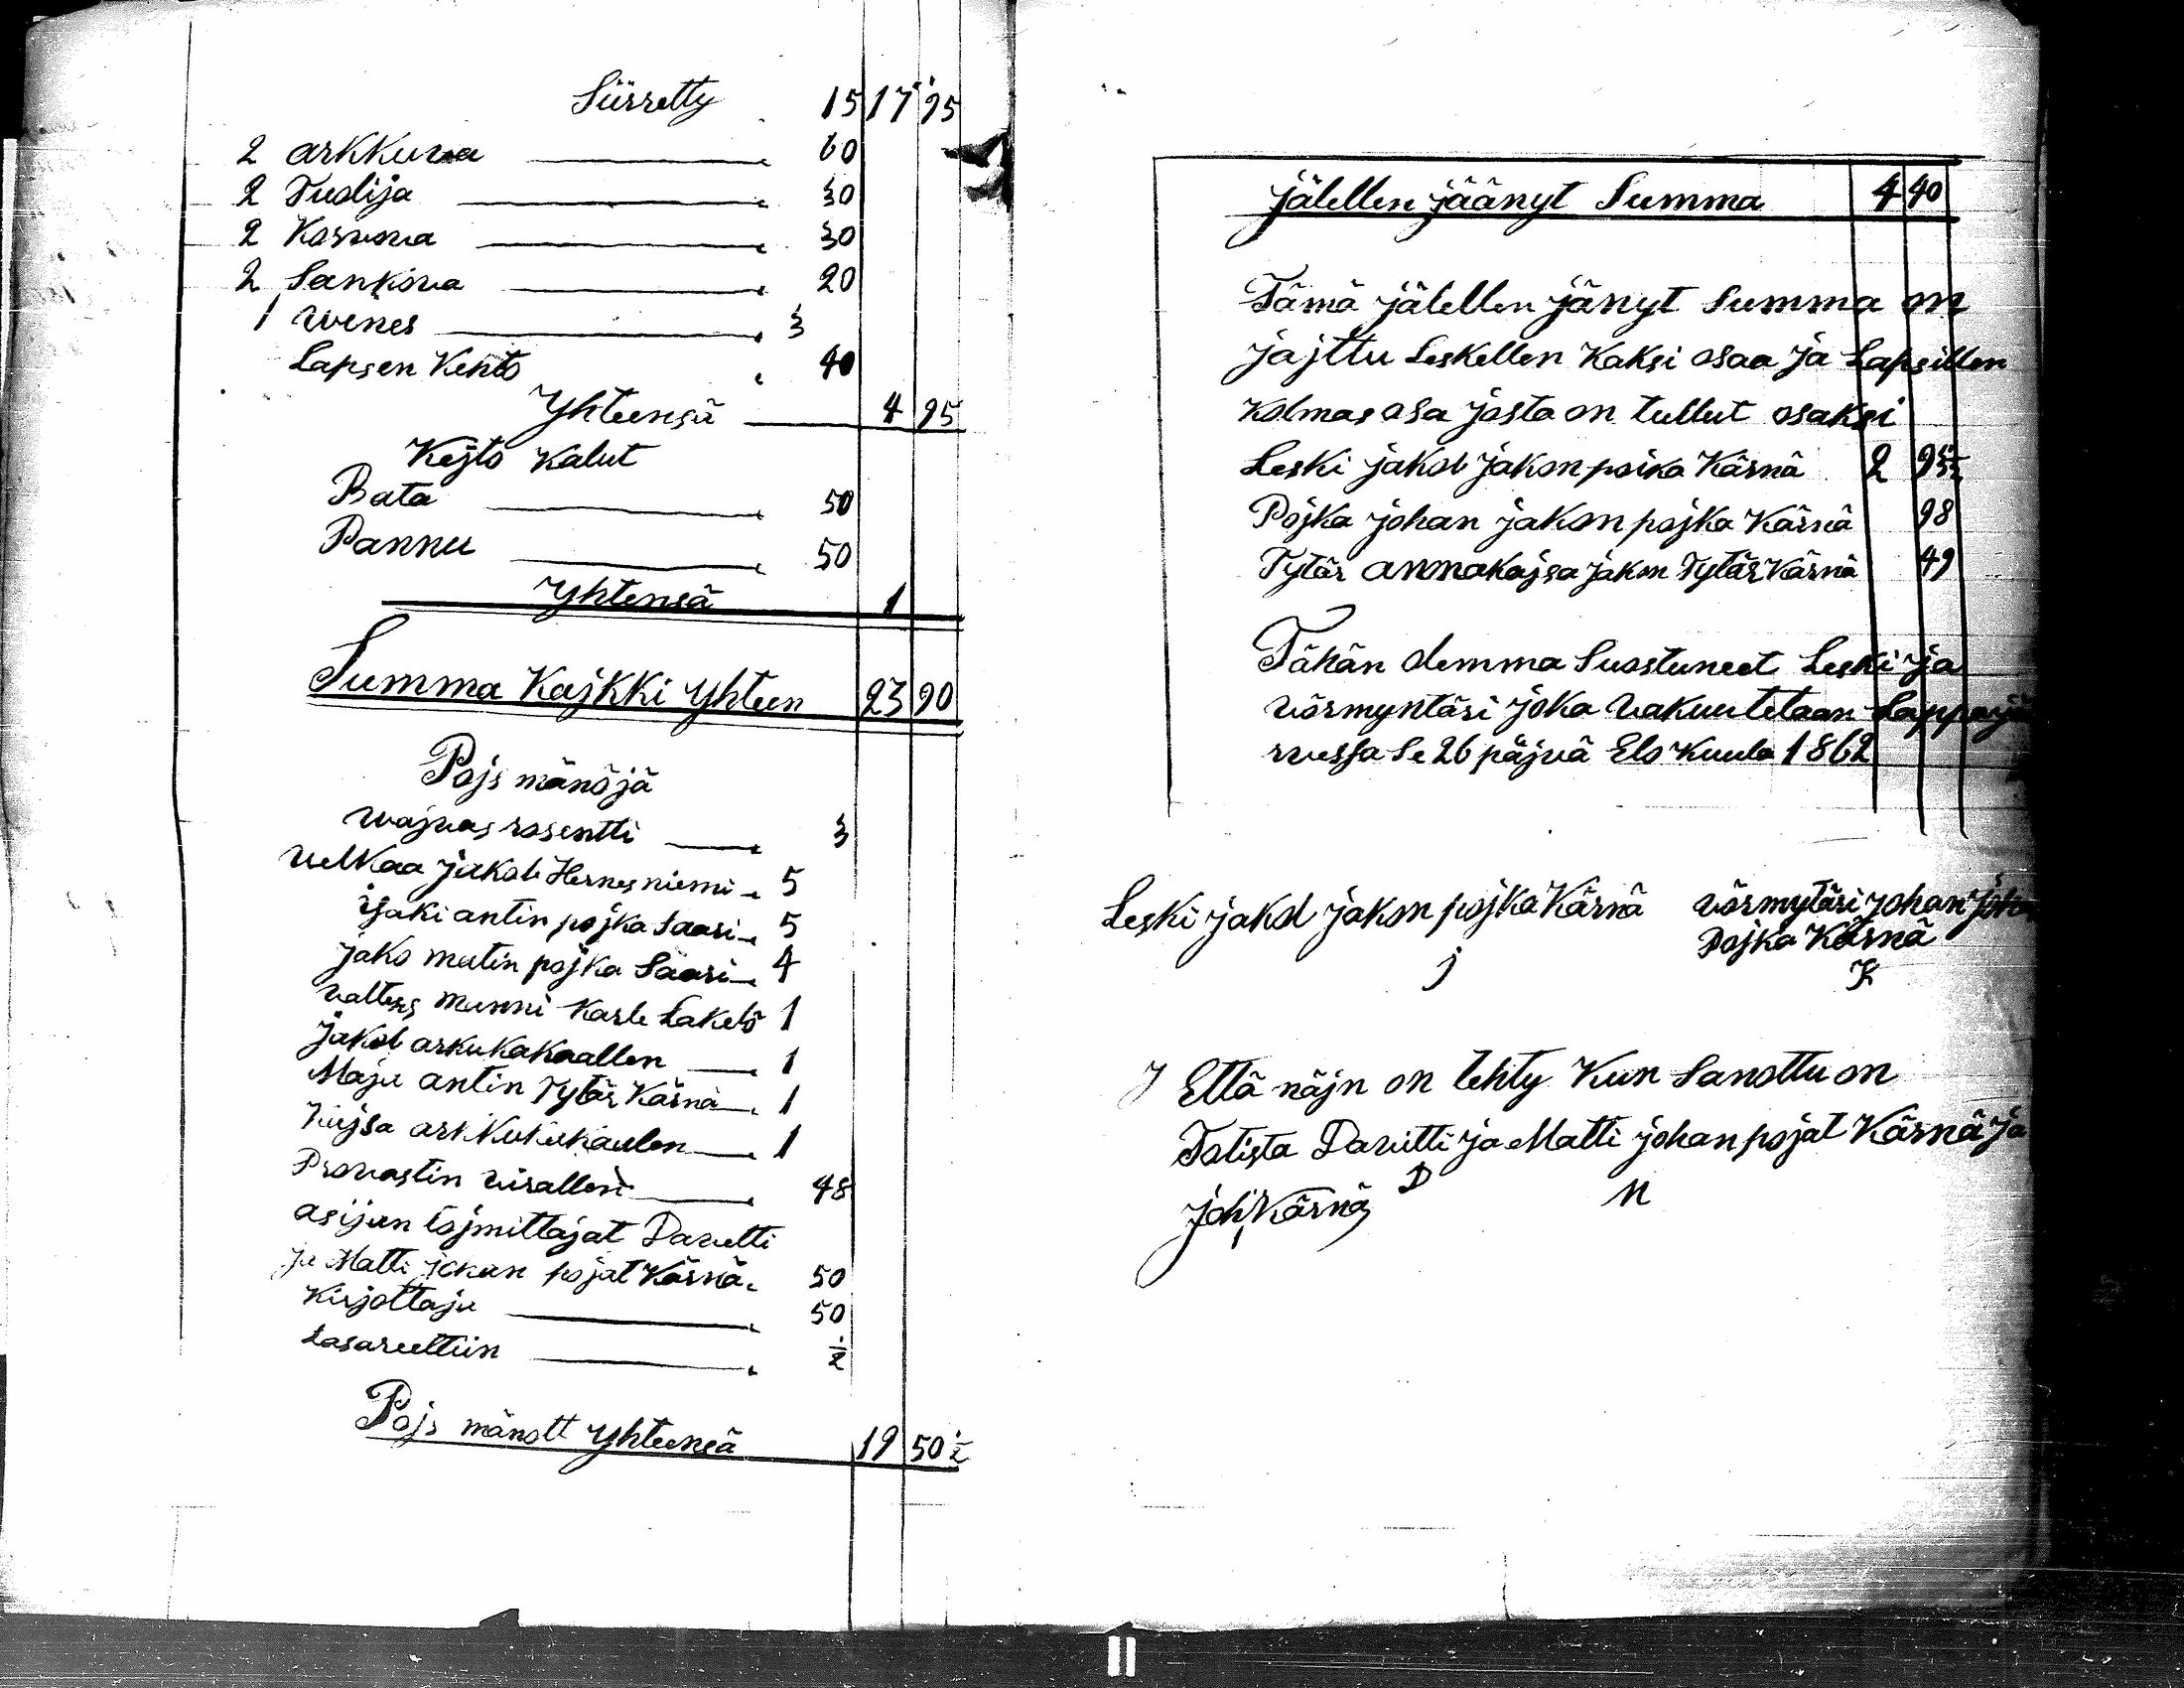 Siirretty 15 17 95
2 arkkuva 60
2 Tuolija 30
2 Korvova 30
2 Sankova 20
1 wenes 3
Lapsen Kehto 40
Yhteensä 4 95
Kejto Kalut
Pata 50
Pannu 50
Yhtensä 1
Summa Kajkki Yhteen 23 90
Pojs mänöjä
wajvas rosentti 3
velkaa jakob Hernesniemi 5
isaki antin pojka Saari 5
jako matin pojka Saari 4
Karle 1
jakob arkukakaallen 1
Maja antin Tytär Kärnä 1
Kajsa 1
Provastin virallen 48
asijan tojmittajat Davitti
ja Matti johan pojat Kärnä 50
Kirjottaja 50
Lasarettiin ½
Pojs mänott Yhteensä 19 50½
jälellen jäänyt Summa 4 40
Tämä jälellen jänyt Summa on
jajttu Leskellen Kaksi osaa ja Lapsillen
Kolmas osa josta on tullut osaksi
Leski jakob jakon poika Kärnä 2
Pojka johan jakon pojka Kärnä 98
Tytär annakajsa jakon Tytär Kärnä 49
Tähän olemma Suostuneet Leski ja
vörmyntäri joka vakuutetaan Lappajä
rvessa Se 26 päjvä Elo Kuula 1862
Leski jakob jakon pojka Kärnä vörmytäri johan joha
Pojka Kärnä
j K
Että näjn on tehty Kun Sanottu on
Totista Davitti ja Matti johan pojat Kärnä ja
D M
joh Kärnä